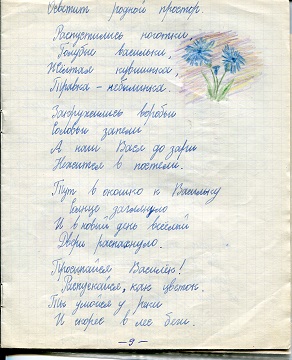 Осветить родной простор.
Распустились ноготки
Голубые васильки,
Жёлтая кувшинка,
Травка - небылинка.
Закружились воробьи
Соловьи запели
А наш Вася до зари
Нежится в постели.
Тут в окошко к Васильку
Солнце заглянуло
И в новый день весёлый
Двери распахнуло.
Просыпайся Василёк!
Распускайся, как цветок.
Ты умойся у реки
И скорее в лес беги.
- 9 -